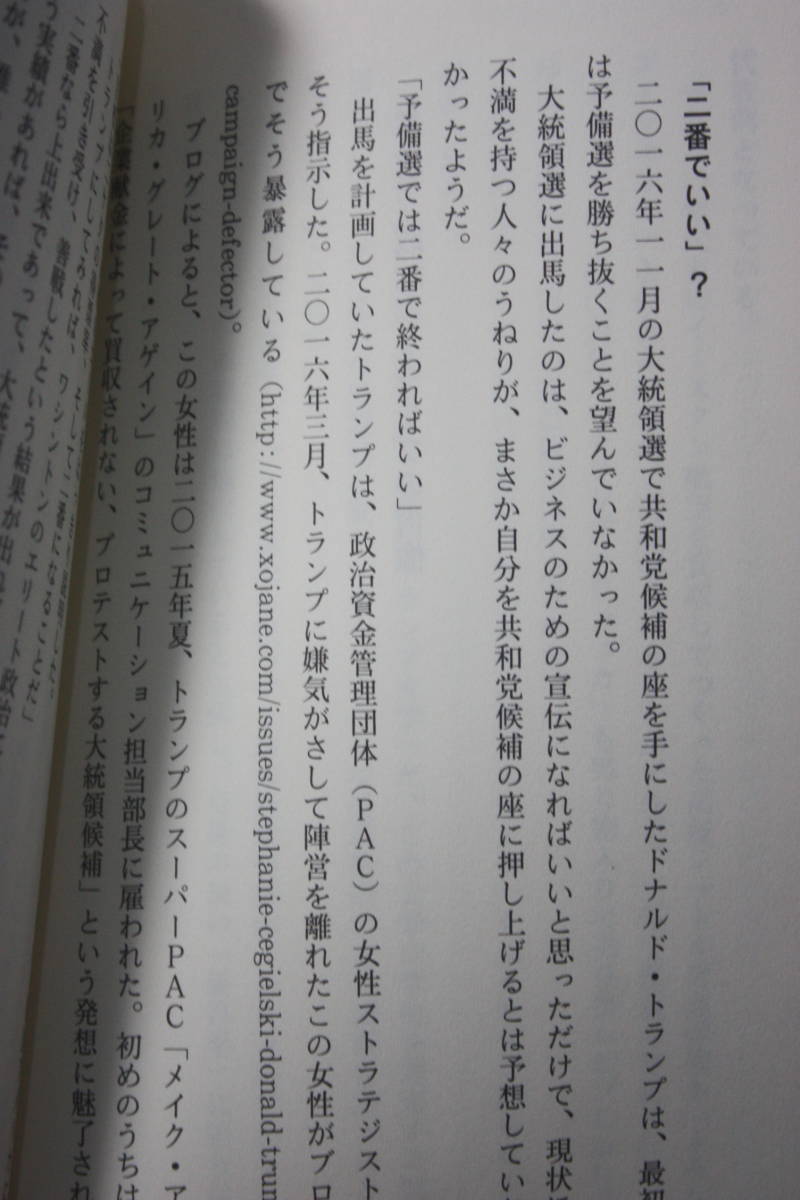 「二番でいい」?
二〇一六年一一月の大統領選で共和党候補の座を手にしたドナルド・トランプは、最初
は予備選を勝ち抜くことを望んでいなかった。
大統領選に出馬したのは、ビジネスのための宣伝になればいいと思っただけで、現状
不満を持つ人々のうねりが、まさか自分を共和党候補の座に押し上げるとは予想してい
かったようだ。
「予備選では二番で終わればいい」
出馬を計画していたトランプは、政治資金管理団体(PAC)の女性ストラテジスト
そう指示した。二〇一六年三月、トランプに嫌気がさして陣営を離れたこの女性がブロ
でそう暴露している(http://www.xojane.com/issues/stephanie-cegielski-donald-trum
campaign-defector)。
ブログによると、この女性は二〇一五年夏、トランプのスーパーPAC「メイク・ア
リカ・グレート・アゲイン」のコミュニケーション担当部長に雇われた。初めのうちは
「企業献金によって買収されない、プロテストする大統領候補」という発想に魅了され
トランプにしてみれば、そして二番になることだ」
不満を引き受け、善戦したという結果が出れ
二番なら上出来であって、ワシントンのエリート政治に
う実績があれば、大統
が、